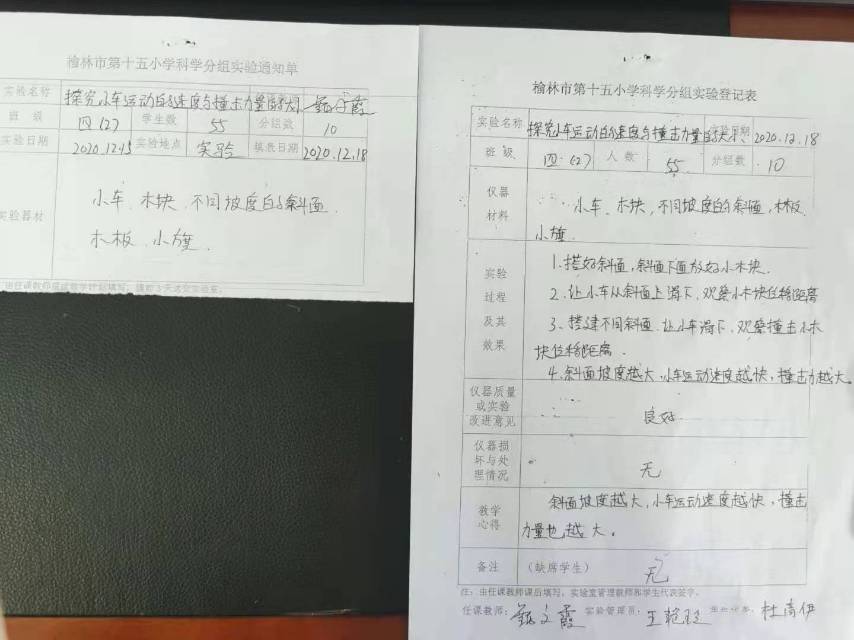 榆林市第十五小学科学分组实验通知单
实验名称 探究小车运动的速度与撞击力量的大小
班 级 四(2) 学生数 55 分组数 10
实验日期 2020.12.15 实验地点 实验 填表日期 2020.12.18
实验器材 小车、木块、不同坡度的斜面、
木板、小旗.
榆林市第十五小学科学分组实验登记表
实验名称 探究小车运动的速度与撞击力量的大小、实验日期 2020.12.18
班 级 四·(2) 人 数 55 分组数 10
仪器
材料
小车、木块,不同坡度的斜面,木板、
小旗.
实验
过程
及其
效果
1.搭好斜面,斜面下面放好小木块.
2.让小车从斜面上滑下,观察小木块位移距离
3、搭建不同斜面.让小车滑下,观察撞击小木
块位移距离.
4.斜面坡度越大,小车运动速度越快,撞击力越大。
仪器质量
或实验
改进意见
良好
仪器损
坏与处
理情况
无
教学
心得
斜面坡度越大,小车运动速度越快,撞击
力量也越大。
备注 (缺席学生) 无
注:由任课教师课后填写,实验室管理教师和学生代表签字。
任课教师: 实验管理员: